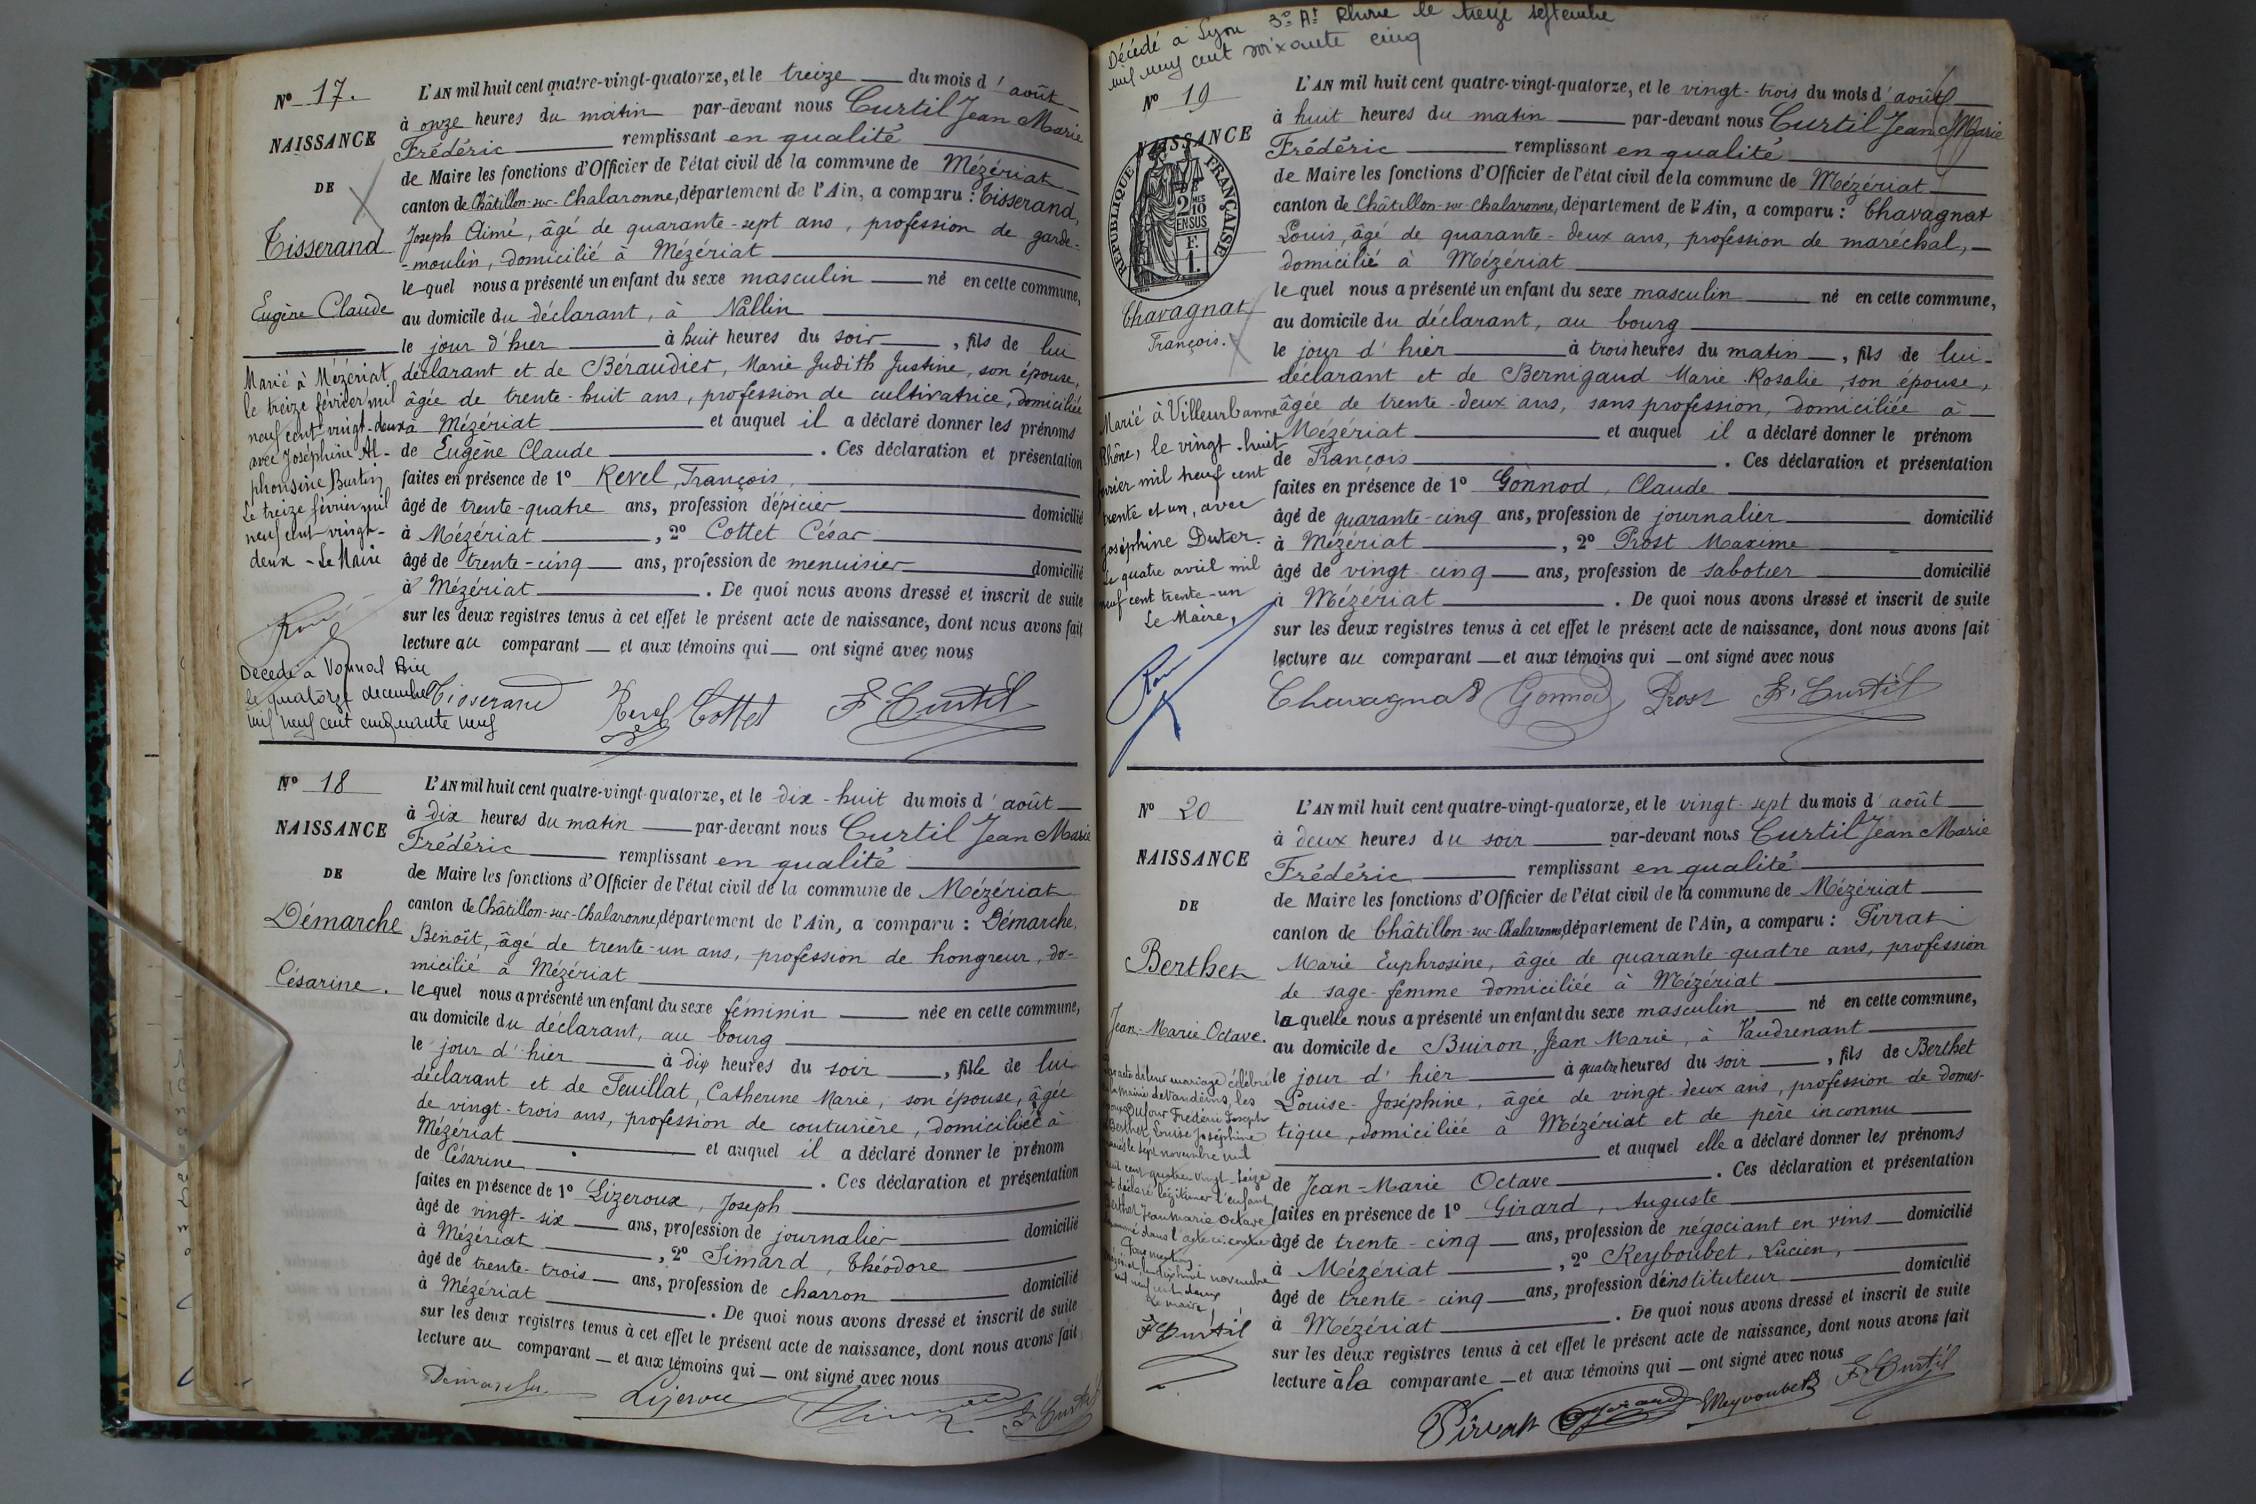 N° 17.
NAISSANCE
DE
Tisserand
Eugène Claude
Marié à Mézériat
le treize février mil
neuf cent vingt-deux
avec Joséphine Al-
phonsine Burtin
Le treize février mil
neuf cent vingt-
deux - Le Maire
Décédé à Vonnas Ain
le quatorze décembre
mil neuf cent cinquante neuf
L'AN mil huit cent quatre-vingt-quatorze, et le treize du mois d'août
à onze heures du matin par-devant nous Curtil Jean Marie
Frédéric remplissant en qualité
de Maire les fonctions d'Officier de l'état civil de la commune de Mézériat
canton de Châtillon-sur-Chalaronne, département de l'Ain, a comparu : Tisserand,
Joseph Aimé, âgé de quarante-sept ans, profession de garde-
-moulin, domicilié à Mézériat
lequel nous a présenté un enfant du sexe masculin né en cette commune,
au domicile du déclarant, à Nallin
le jour d'hier à huit heures du soir, fils de lui
déclarant et de Béraudier, Marie Judith Justine, son épouse,
âgée de trente-huit ans, profession de cultivatrice, domiciliée
à Mézériat et auquel il a déclaré donner les prénoms
de Eugène Claude. Ces déclaration et présentation
faites en présence de 1° Revel, François,
âgé de trente-quatre ans, profession d'épicier domicilié
à Mézériat, 2° Cottet César
âgé de trente-cinq ans, profession de menuisier domicilié
à Mézériat. De quoi nous avons dressé et inscrit de suite
sur les deux registres tenus à cet effet le présent acte de naissance, dont nous avons fait
lecture au comparant et aux témoins qui ont signé avec nous
Tisserand Revel Cottet F. Curtil
N° 18
NAISSANCE
DE
Démarche
Césarine.
L'AN mil huit cent quatre-vingt-quatorze, et le dix-huit du mois d'août
à dix heures du matin par-devant nous Curtil Jean Marie
Frédéric remplissant en qualité
de Maire les fonctions d'Officier de l'état civil de la commune de Mézériat
canton de Châtillon-sur-Chalaronne, département de l'Ain, a comparu : Démarche,
Benoît, âgé de trente-un ans, profession de hongreur, do-
micilié à Mézériat
lequel nous a présenté un enfant du sexe féminin née en cette commune,
au domicile du déclarant, au bourg
le jour d'hier à dix heures du soir, fille de lui
déclarant et de Feuillat, Catherine Marie, son épouse, âgée
de vingt-trois ans, profession de couturière, domiciliée à
Mézériat et auquel il a déclaré donner le prénom
de Césarine. Ces déclaration et présentation
faites en présence de 1° Lizeroux, Joseph
âgé de vingt-six ans, profession de journalier domicilié
à Mézériat, 2° Simard, Théodore
âgé de trente-trois ans, profession de charron domicilié
à Mézériat. De quoi nous avons dressé et inscrit de suite
sur les deux registres tenus à cet effet le présent acte de naissance, dont nous avons fait
lecture au comparant et aux témoins qui ont signé avec nous
Lizeroux F. Curtil
Décédé à Lyon 3e At Rhône le treize septembre
mil neuf cent soixante cinq
N° 19
NAISSANCE
DE
RÉPUBLIQUE FRANÇAISE
2 MES 10
EN SUS
F. 1.
Chavagnat
François.
Marié à Villeurbanne
Rhône, le vingt-huit
février mil neuf cent
trente et un, avec
Joséphine Duter.
Le quatre avril mil
neuf cent trente-un
Le Maire,
L'AN mil huit cent quatre-vingt-quatorze, et le vingt-trois du mois d'août
à huit heures du matin par-devant nous Curtil Jean Marie
Frédéric remplissant en qualité
de Maire les fonctions d'Officier de l'état civil de la commune de Mézériat
canton de Châtillon-sur-Chalaronne, département de l'Ain, a comparu : Chavagnat
Louis, âgé de quarante-deux ans, profession de maréchal,
domicilié à Mézériat
lequel nous a présenté un enfant du sexe masculin né en cette commune,
au domicile du déclarant, au bourg
le jour d'hier à trois heures du matin, fils de lui-
déclarant et de Bernigaud Marie Rosalie, son épouse,
âgée de trente-deux ans, sans profession, domiciliée à
Mézériat et auquel il a déclaré donner le prénom
de François. Ces déclaration et présentation
faites en présence de 1° Gonnod, Claude
âgé de quarante-cinq ans, profession de journalier domicilié
à Mézériat, 2° Prost Maxime
âgé de vingt cinq ans, profession de sabotier domicilié
à Mézériat. De quoi nous avons dressé et inscrit de suite
sur les deux registres tenus à cet effet le présent acte de naissance, dont nous avons fait
lecture au comparant et aux témoins qui ont signé avec nous
Chavagnat Gonnod Prost F. Curtil
N° 20
NAISSANCE
DE
Berthet
Jean-Marie Octave.
acte de leur mariage célébré
la mairie de Vandeins, les
Dufour Frédéric Joseph
Berthet, Louise Joséphine
le sept novembre mil
huit cent quatre vingt-seize
ont déclaré légitimer l'enfant
Berthet Jean Marie Octave
dans l'acte ci-contre
novembre
Le maire,
F. Curtil
L'AN mil huit cent quatre-vingt-quatorze, et le vingt-sept du mois d'août
à deux heures du soir par-devant nous Curtil Jean Marie
Frédéric remplissant en qualité
de Maire les fonctions d'Officier de l'état civil de la commune de Mézériat
canton de Châtillon-sur-Chalaronne, département de l'Ain, a comparu : Pirrat
Marie Euphrosine, âgée de quarante-quatre ans, profession
de sage-femme domiciliée à Mézériat
laquelle nous a présenté un enfant du sexe masculin né en cette commune,
au domicile de Buiron, Jean Marie, à Vaudrenant
le jour d'hier à quatre heures du soir, fils de Berthet
Louise-Joséphine, âgée de vingt-deux ans, profession de domes-
tique, domiciliée à Mézériat et de père inconnu
et auquel elle a déclaré donner les prénoms
de Jean-Marie Octave. Ces déclaration et présentation
faites en présence de 1° Girard, Auguste
âgé de trente-cinq ans, profession de négociant en vins domicilié
à Mézériat, 2° Reyboubet, Lucien,
âgé de trente-cinq ans, profession d'instituteur domicilié
à Mézériat. De quoi nous avons dressé et inscrit de suite
sur les deux registres tenus à cet effet le présent acte de naissance, dont nous avons fait
lecture à la comparante et aux témoins qui ont signé avec nous
Pirrat Girard F. Curtil